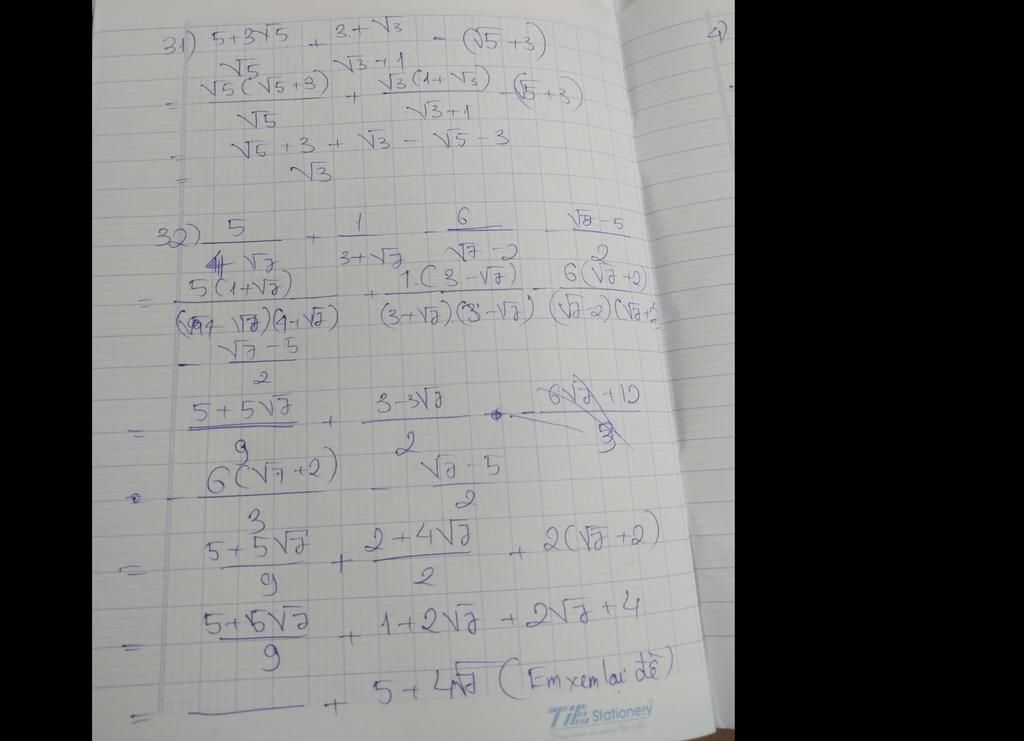 31) (5+3√5)/√5 + (3+√3)/(√3+1) - (√5+3)
= √5(√5+3)/√5 + √3(1+√3)/(√3+1) - (√5+3)
= √5 + 3 + √3 - √5 - 3
= √3
32) 5/(4-√7) + 1/(3+√7) - 6/(√7-2) - (√7-5)/2
= 5(1+√7)/((4-√7)(4+√7)) + 1.(3-√7)/((3+√7).(3-√7)) - 6(√7+2)/((√7-2)(√7+2)
- (√7-5)/2
= (5+5√7)/9 + (3-3√7)/2 - (6√7+12)/3
- 6(√7+2)/3 - (√7-5)/2
= (5+5√7)/9 + (2+4√7)/2 + 2(√7+2)
= (5+5√7)/9 + 1+2√7 + 2√7+4
= + 5+4√7 (Em xem lại đề)
TiE Stationery
4)